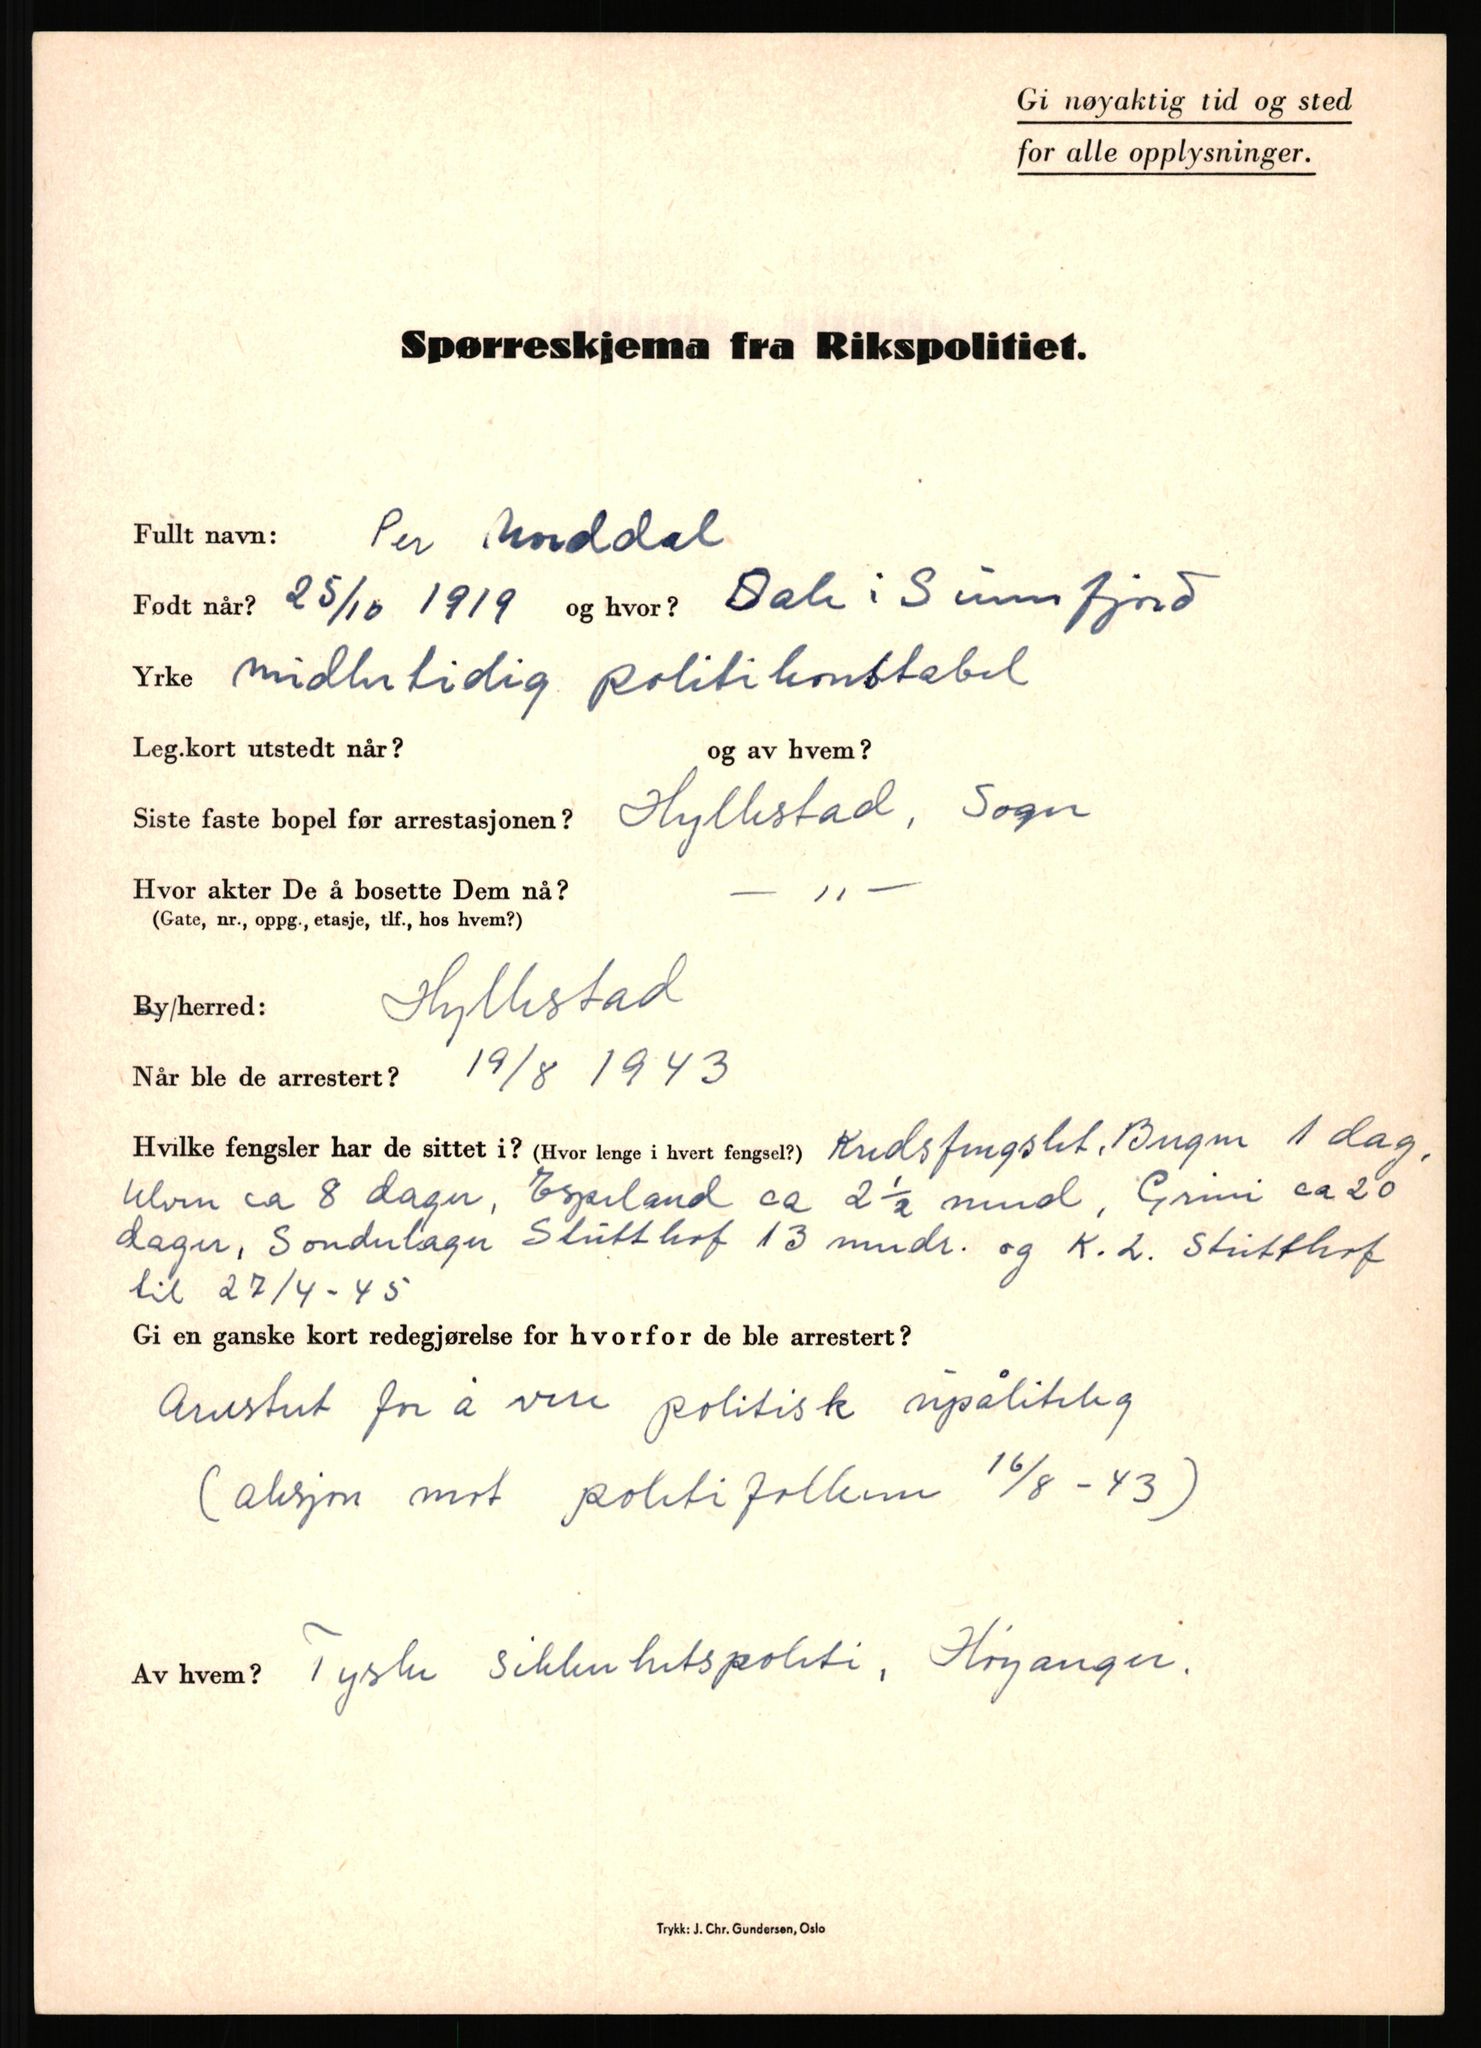 Gi nøyaktig tid og sted
for alle opplysninger.
Spørreskjema fra Rikspolitiet.
Fullt navn: Per
Født når? 25/10 1919 og hvor? Dale i Sunnfjord
Yrke midlertidig politikonstabel
Leg.kort utstedt når? og av hvem?
Siste faste bopel før arrestasjonen? Hyllestad, Sogn
Hvor akter De å bosette Dem nå? — " —
(Gate, nr., oppg., etasje, tlf., hos hvem?)
By/herred: Hyllestad
Når ble de arrestert? 19/8 1943
Hvilke fengsler har de sittet i? (Hvor lenge i hvert fengsel?) Kredsfengslet, Bergen 1 dag,
Ulven ca 8 dager, Espeland ca 2 ½ mnd, Grini ca 20
dager, Sonderlager Stutthof 13 mndr. og K.L. Stutthof
til 27/4-45
Gi en ganske kort redegjørelse for hvorfor de ble arrestert?
Arrestert for å vere politisk upåliteleg
(aksjon mot politifolkene 16/8-43)
Av hvem? Tyske sikkerhetspoliti, Höyanger.
Trykk: J. Chr. Gundersen, Oslo